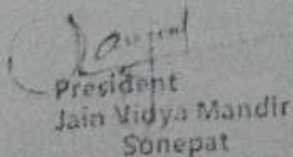 President
Jain Vidya Mandir
Sonepat